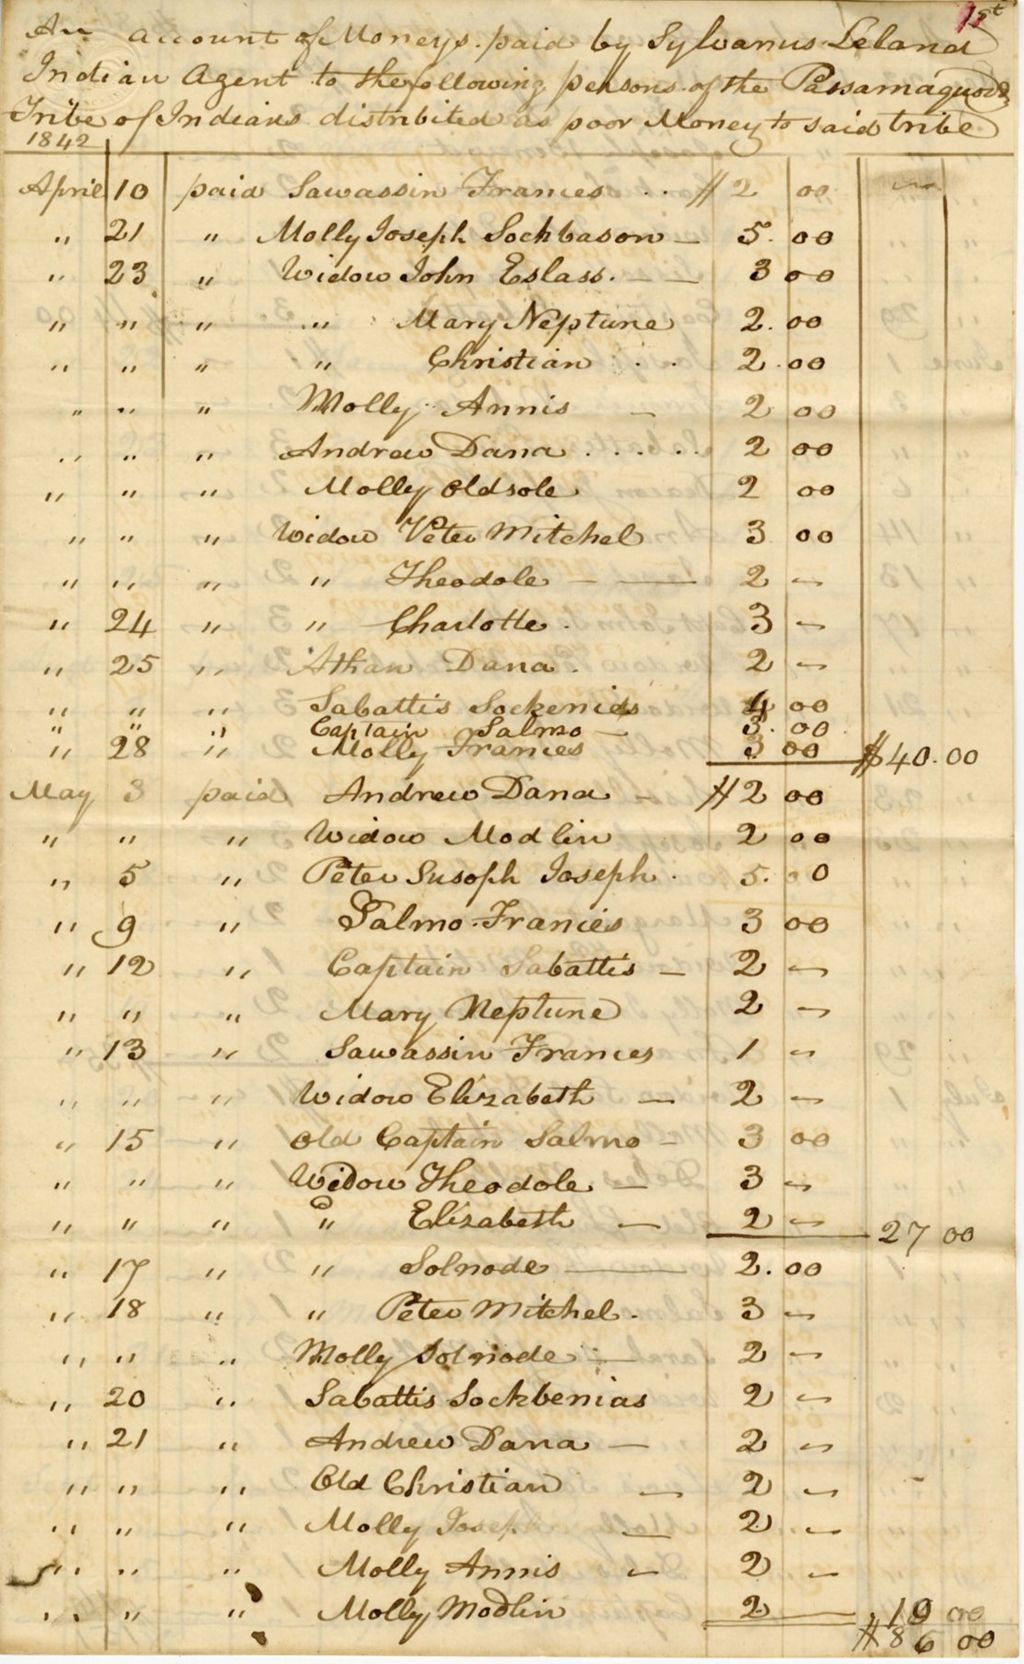 1st
An account of Moneys paid by Sylvanus Leland
Indian Agent to the following persons of the Passamaquody
Tribe of Indians distribited as poor Money to said tribe
1842
April 10 paid Sawassin Frances . . $ 2 00
" 21 " Molly Joseph Sockbason — 5. 00
" 23 " Widow John Eslass. — — 3 00
" " " " Mary Neptune 2. 00
" " " " Christian . . 2. 00
" " " Molly Annis — 2 00
" " " Andrew Dana . . . . . . 2 00
" " " Molly Oldsole 2 00
" " " Widow Peter Mitchel 3 00
" " " " Theodole — — 2 —
" 24 " " Charlotte . 3 —
" 25 " Athan Dana . 2 —
" " " Sabattis Sockenias 4 00
" " " Captain Salmo — 3. 00
" 28 " Molly Frances 3 00 $40.00
May 3 paid Andrew Dana — $ 2 00
" " " Widow Modlin 2 00
" 5 " Peter Susoph Joseph . 5. 00
" 9 " Salmo Francies 3 00
" 12 " Captain Sabattis — 2 —
" " " Mary Neptune 2 —
" 13 " Sawassin Frances 1 —
" " " Widow Elizabeth — 2 —
" 15 " Old Captain Salmo — 3 00
" " " Widow Theodole — 3 —
" " " " Elizabeth — 2 — 27 00
" 17 " " Solnode — 2. 00
" 18 " " Peter Mitchel . 3 —
" " " Molly Solnode — 2 —
" 20 " Sabattis Sockbenias 2 —
" 21 " Andrew Dana — 2 —
" " " Old Christian — 2 —
" " " Molly Joseph — 2 —
" " " Molly Annis — 2 —
" " " Molly Modlin 2 — 19 00
$86 00